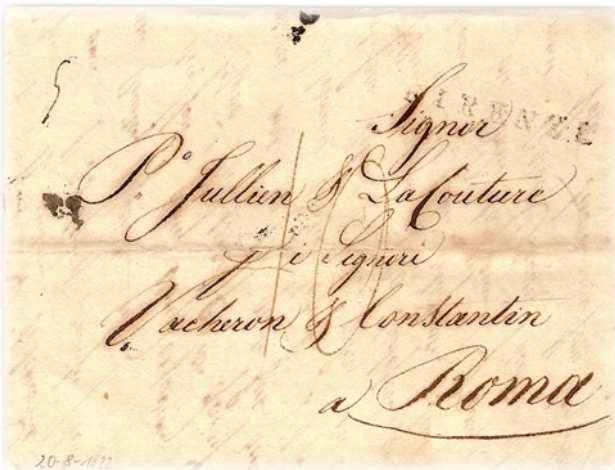 FIRENZE
Signor
P.º Jullien & LaCouture
p i Signori
Vacheron & Constantin
a Roma
10
20-8-1822